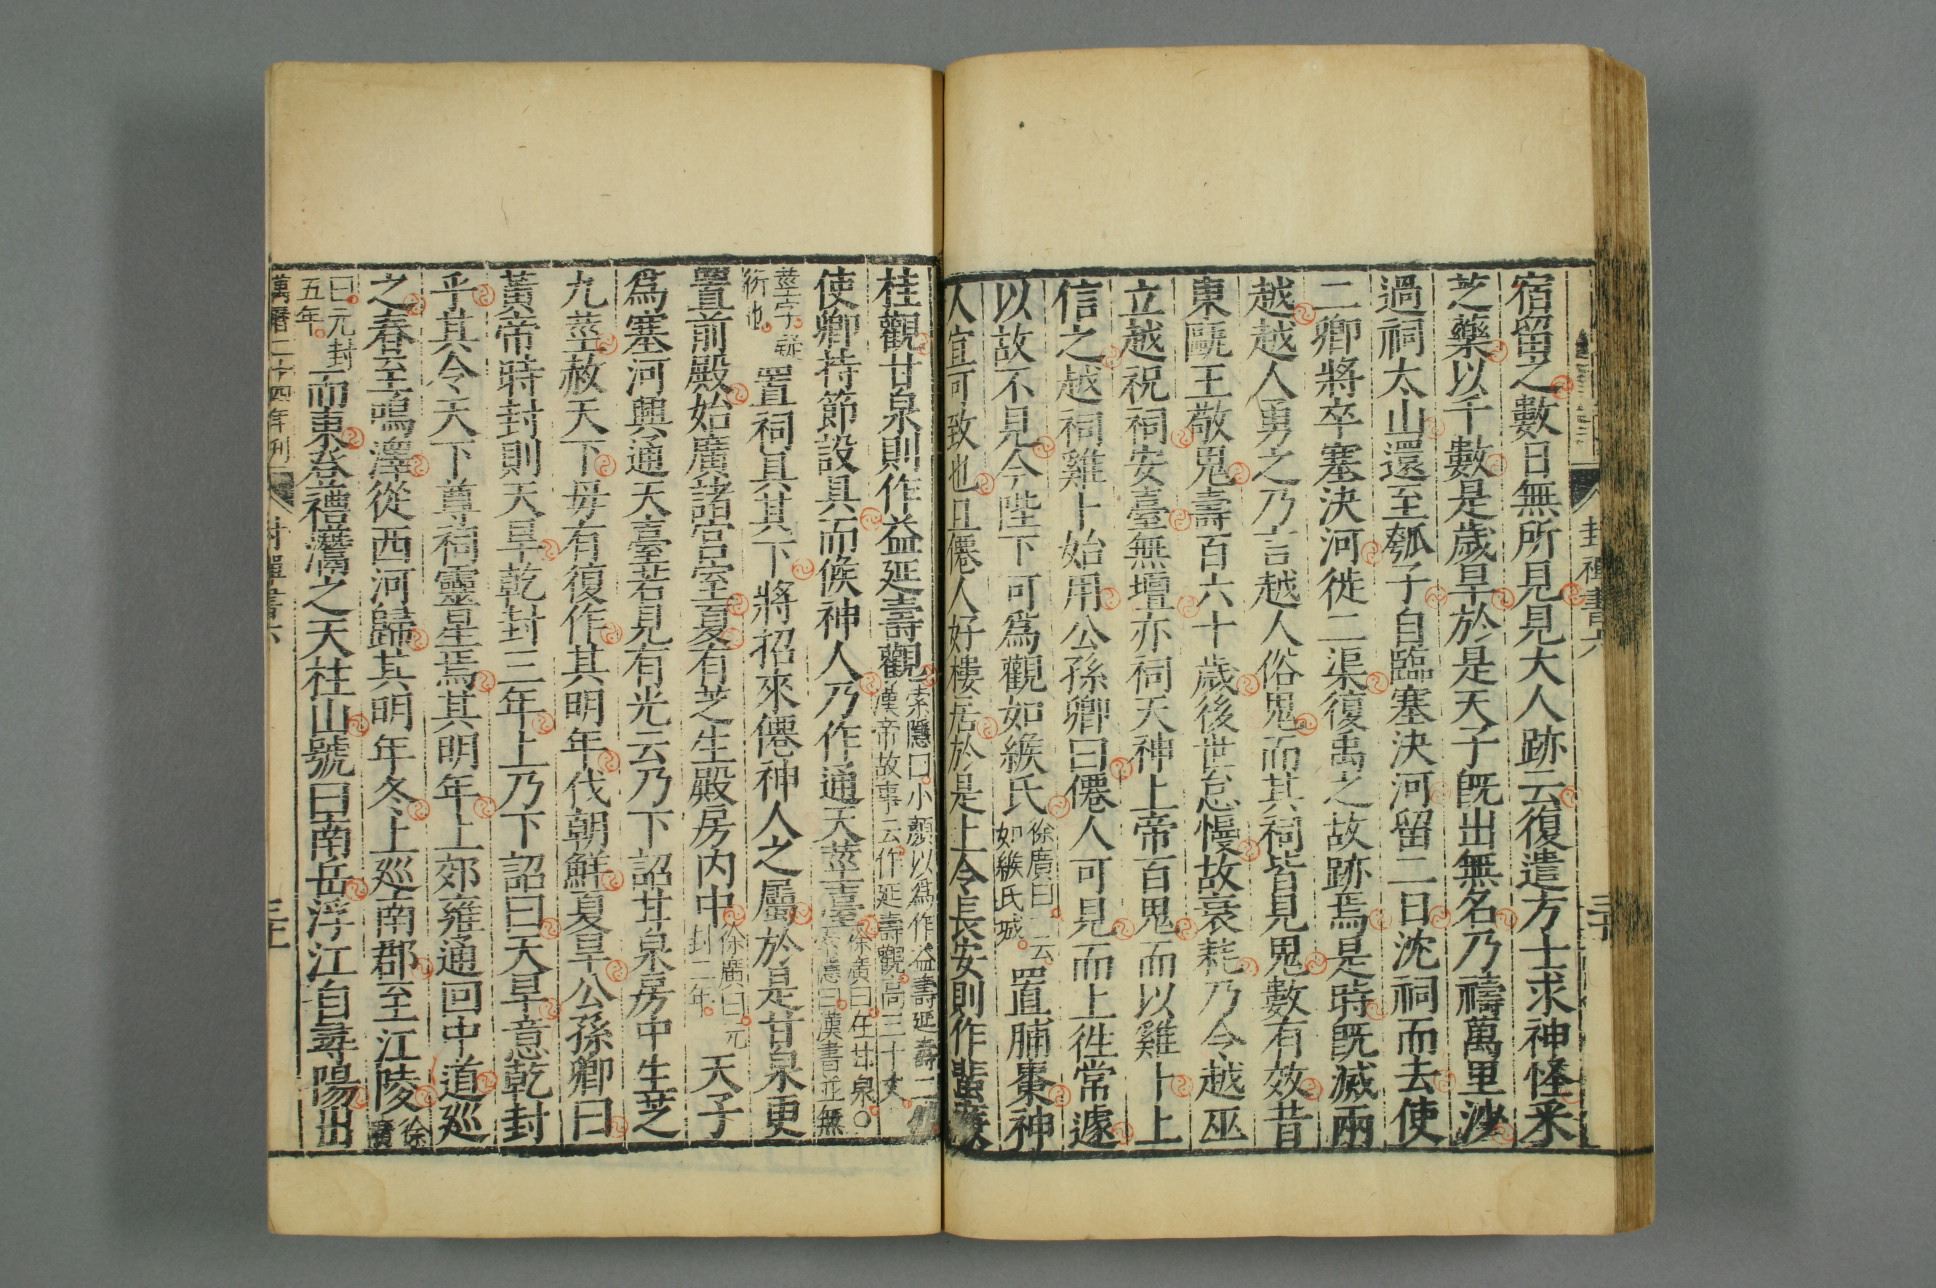 封禪書六
宿留之數日無所見見大人跡云復遣方士求神怪采
芝藥以千數是歲旱於是天子旣出無名乃禱萬里沙
過祠太山還至瓠子自臨塞決河留二日沈祠而去使
二卿將卒塞決河徙二渠復禹之故跡焉是時旣滅兩
越越人勇之乃言越人俗鬼而其祠皆見鬼數有效昔
東甌王敬鬼壽百六十歲後世怠慢故衰耗乃令越巫
立越祝祠安臺無壇亦祠天神上帝百鬼而以雞卜上
信之越祠雞卜始用公孫卿曰僊人可見而上徃常遽
以故不見今陛下可爲觀如緱氏徐廣曰一云如緱氏城置脯棗神
人宜可致也且僊人好樓居於是上令長安則作蜚廉
桂觀甘泉則作益延壽觀索隱曰小顏以爲作益壽延壽二館漢帝故事云作延壽觀高三十丈
使卿持節設具而候神人乃作通天莖臺徐廣曰在甘泉○索隱曰漢書並無
莖字疑衍也置祠具其下將招來僊神人之屬於是甘泉更
置前殿始廣諸宮室夏有芝生殿房內中徐廣曰元封二年天子
爲塞河興通天臺若見有光云乃下詔甘泉房中生芝
九莖赦天下毋有復作其明年伐朝鮮夏旱公孫卿曰
黃帝時封則天旱乾封三年上乃下詔曰天旱意乾封
乎其令天下尊祠靈星焉其明年上郊雍通回中道廵
之春至鳴澤從西河歸其明年冬上廵南郡至江陵徐廣
曰元封五年而東登禮灊之天柱山號曰南岳浮江自尋陽出
萬曆二十四年刊 封禪書六